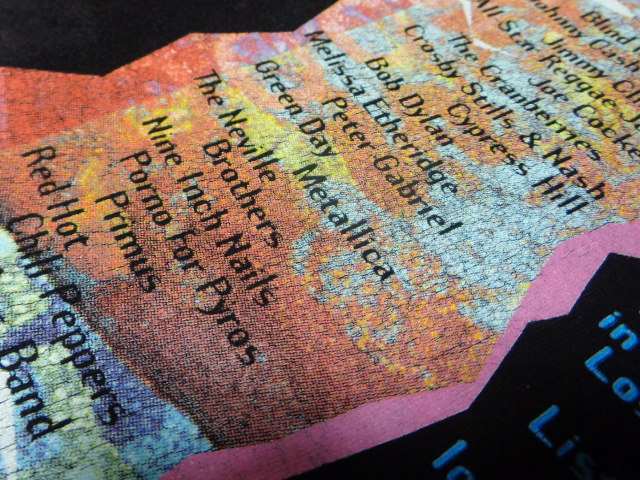 Blind
Johnny Cash
Jimmy Cl
All Star Reggae
Joe Cocke
The Cranberries
Crosby Stills & Nash
Cypress Hill
Bob Dylan
Melissa Etheridge
Peter Gabriel
Green Day
Metallica
The Neville
Brothers
Nine Inch Nails
Porno For Pyros
Primus
Red Hot
Chili Peppers
Band
in
Lo
Lis